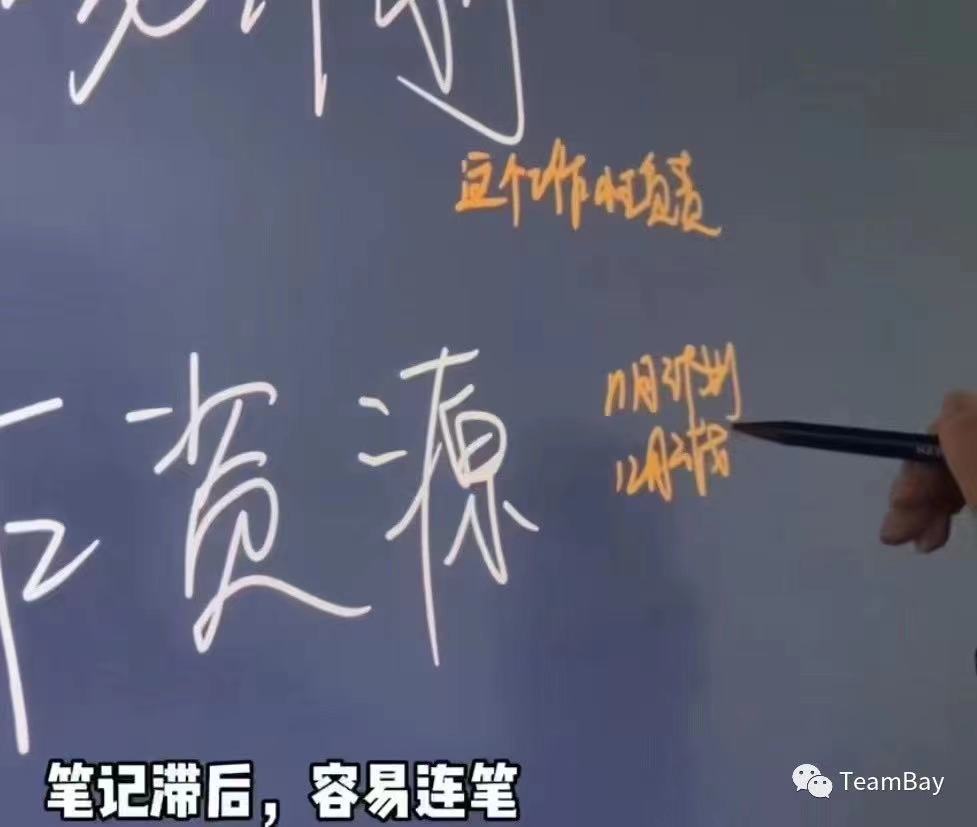 这个工作小王负责
资源
11月计划
12月计划
笔记滞后，容易连笔
TeamBay